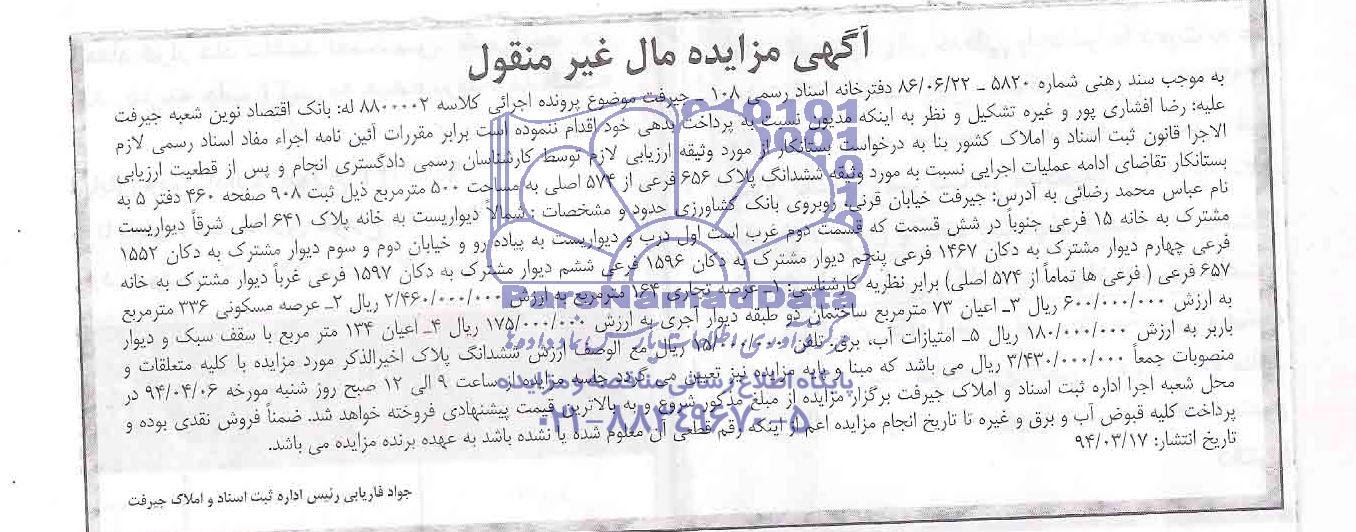 آگهی مزایده مال غیر منقول
به موجب سند رهنی شماره ۵۸۲۰ ـ ۸۶/۰۶/۲۲ دفترخانه اسناد رسمی ۱۰۸ ـ جیرفت موضوع پرونده اجرائی کلاسه ۸۸۰۰۰۰۲ له: بانک اقتصاد نوین شعبه جیرفت
علیه: رضا افشاری پور و غیره تشکیل و نظر به اینکه مدیون نسبت به پرداخت بدهی خود اقدام ننموده است برابر مقررات آئین نامه اجراء مفاد اسناد رسمی لازم
الاجرا قانون ثبت اسناد و املاک کشور بنا به درخواست بستانکار از مورد وثیقه ارزیابی لازم توسط کارشناسان رسمی دادگستری انجام و پس از قطعیت ارزیابی
بستانکار تقاضای ادامه عملیات اجرایی نسبت به مورد وثیقه ششدانگ پلاک ۶۵۶ فرعی از ۵۷۴ اصلی به مساحت ۵۰۰ مترمربع ذیل ثبت ۹۰۸ صفحه ۴۶۰ دفتر ۵ به
نام عباس محمد رضائی به آدرس: جیرفت خیابان قرنی روبروی بانک کشاورزی حدود و مشخصات : شمالاً دیواریست به خانه پلاک ۶۴۱ اصلی شرقاً دیواریست
مشترک به خانه ۱۵ فرعی جنوباً در شش قسمت که قسمت دوم غرب است اول درب و دیواریست به پیاده رو و خیابان دوم و سوم دیوار مشترک به دکان ۱۵۵۲
فرعی چهارم دیوار مشترک به دکان ۱۴۶۷ فرعی پنجم دیوار مشترک به دکان ۱۵۹۶ فرعی ششم دیوار مشترک به دکان ۱۵۹۷ فرعی غرباً دیوار مشترک به خانه
۶۵۷ فرعی ( فرعی ها تماماً از ۵۷۴ اصلی) برابر نظریه کارشناسی: ۱ـ عرصه تجاری ۱۶۴ مترمربع به ارزش ۲/۴۶۰/۰۰۰/۰۰۰ ریال ۲ـ عرصه مسکونی ۳۳۶ مترمربع
به ارزش ۶۰۰/۰۰۰/۰۰۰ ریال ۳ـ اعیان ۷۳ مترمربع ساختمان دو طبقه دیوار آجری به ارزش ۱۷۵/۰۰۰/۰۰۰ ریال ۴ـ اعیان ۱۳۴ متر مربع با سقف سبک و دیوار
باربر به ارزش ۱۸۰/۰۰۰/۰۰۰ ریال ۵ـ امتیازات آب، برق، تلفن ۱۵/۰۰۰/۰۰۰ ریال مع الوصف ارزش ششدانگ پلاک اخیرالذکر مورد مزایده با کلیه متعلقات و
منصوبات جمعاً ۳/۴۳۰/۰۰۰/۰۰۰ ریال می باشد که مبنا و پایه مزایده نیز تعیین می گردد جلسه مزایده از ساعت ۹ الی ۱۲ صبح روز شنبه مورخه ۹۴/۰۴/۰۶ در
محل شعبه اجرا اداره ثبت اسناد و املاک جیرفت برگزار مزایده از مبلغ مذکور شروع و به بالاترین قیمت پیشنهادی فروخته خواهد شد. ضمناً فروش نقدی بوده و
پرداخت کلیه قبوض آب و برق و غیره تا تاریخ انجام مزایده اعم از اینکه رقم قطعی آن معلوم شده یا نشده باشد به عهده برنده مزایده می باشد.
تاریخ انتشار: ۹۴/۰۳/۱۷
جواد فاریابی رئیس اداره ثبت اسناد و املاک جیرفت
ParsNamadData
پایگاه اطلاع رسانی مناقصه و مزایده
۰۲۱-۸۸۳۴۹۶۷۰-۵